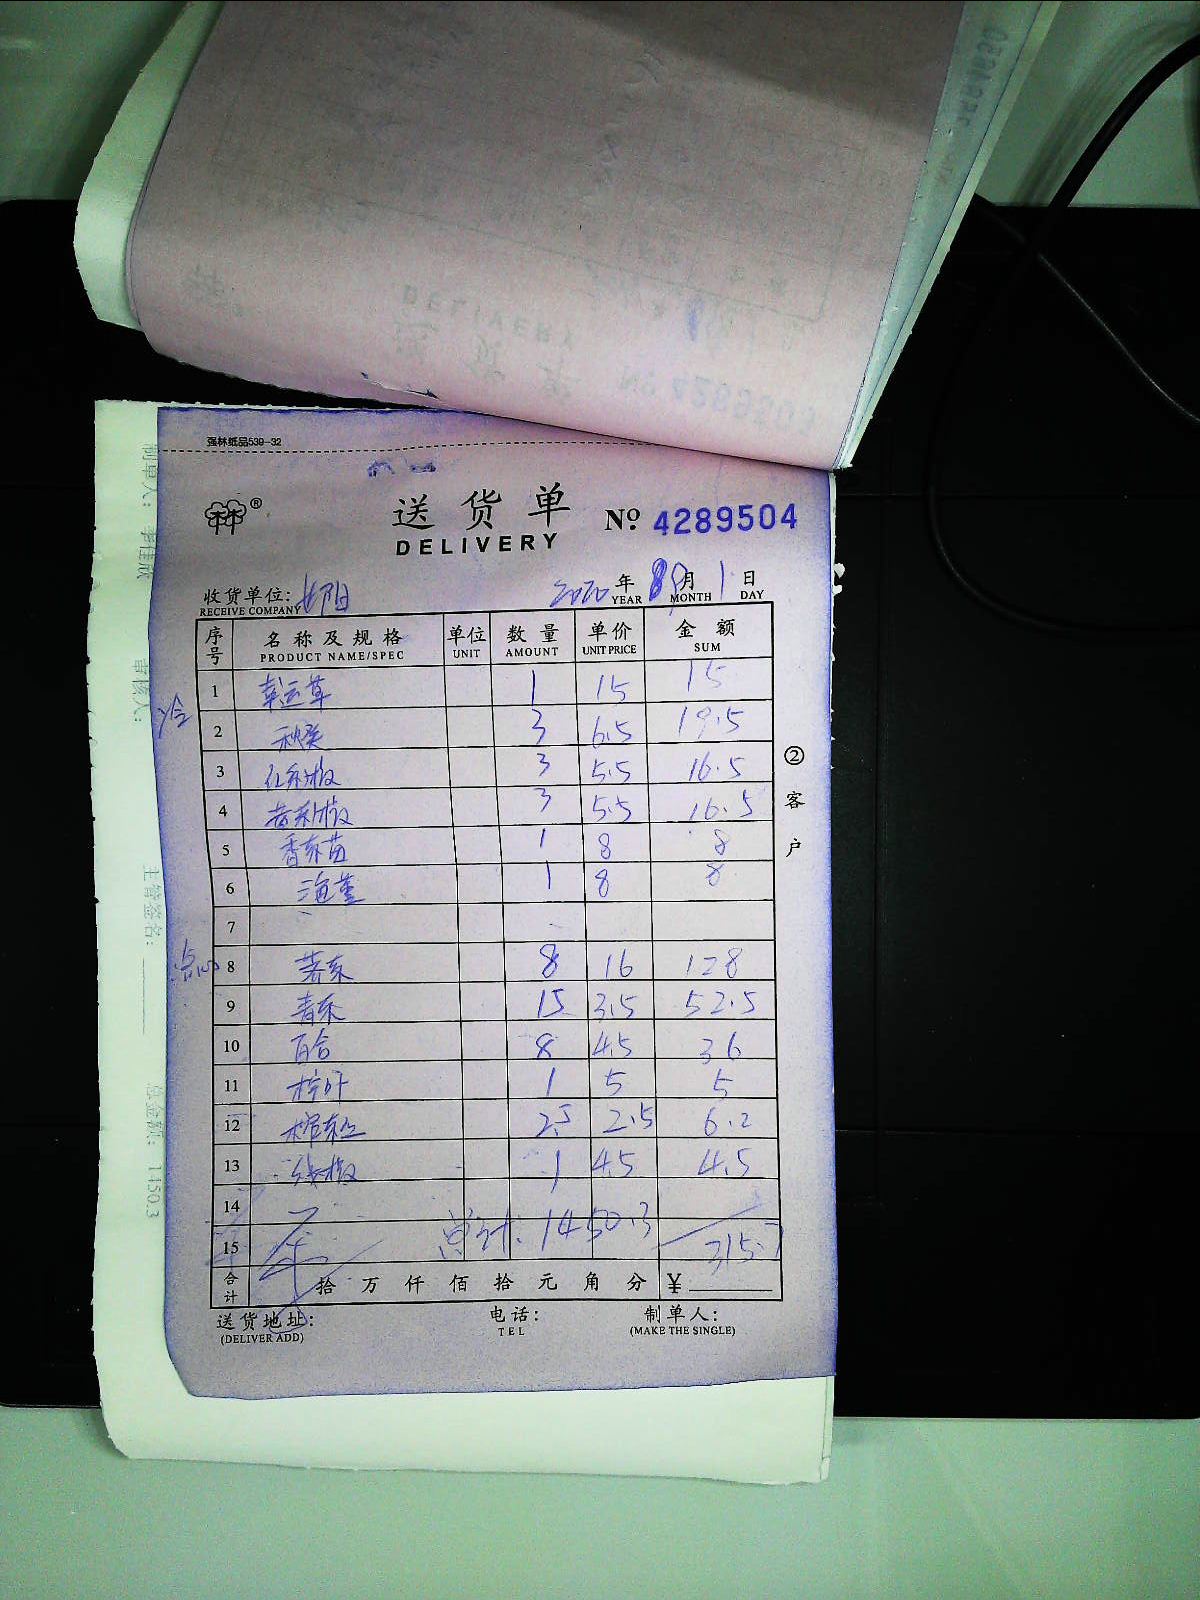 强林纸品539-32
送货单 № 4289504
DELIVERY
收货单位: 2020年 8月 1日
RECEIVE COMPANY YEAR MONTH DAY
序号 名称及规格 单位 数量 单价 金额
PRODUCT NAME/SPEC UNIT AMOUNT UNIT PRICE SUM
1 幸运草 1 15 15
2 秋葵 3 6.5 19.5
3 红彩椒 3 5.5 16.5
4 黄彩椒 3 5.5 16.5
5 香菜苗 1 8 8
6 1 8 8
7
点心 8 8 16 128
9 青菜 15 3.5 52.5
10 百合 8 4.5 36
11 1 5 5
12 2.5 2.5 6.2
13 线椒 1 4.5 4.5
14 总计: 1450.3
15 315.7
合计 拾 万 仟 佰 拾 元 角 分 ¥
送货地址: 电话: 制单人:
(DELIVER ADD) TEL (MAKE THE SINGLE)
②客户
制单人:
审核人:
主管签名:
总金额: 1450.3